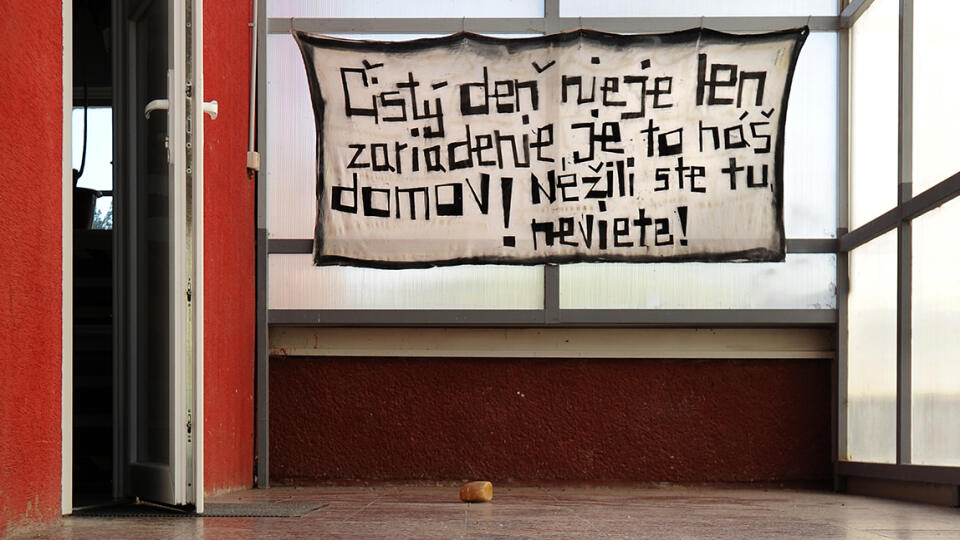 Čistý deň nieje len
zariadenie, je to náš
domov! Nežili ste tu,
neviete!